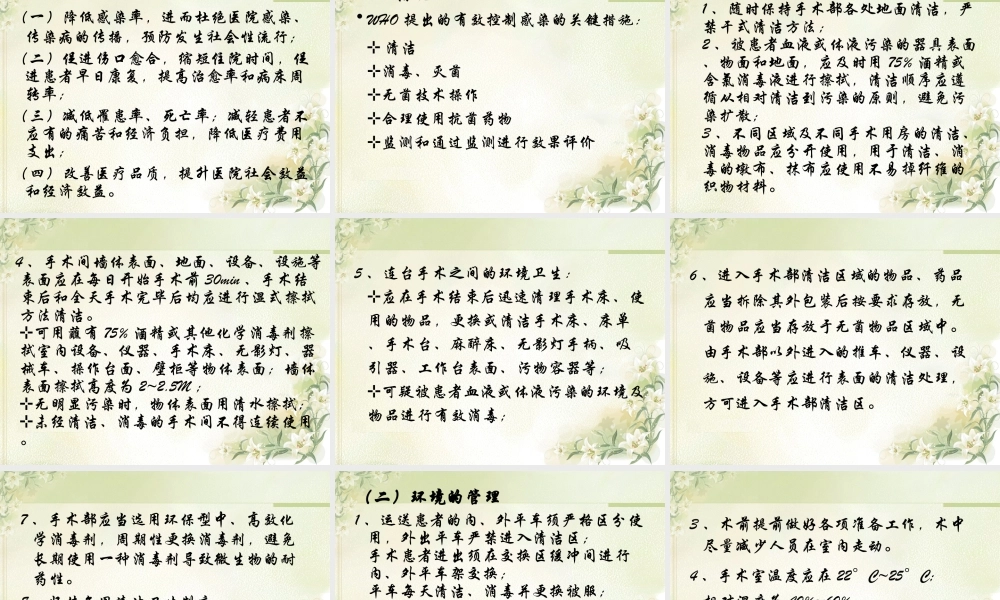 （一）降低感染率，进而杜绝医院感染、
传染病的传播，预防发生社会性流行；
（二）促进伤口愈合，缩短住院时间，促
进患者早日康复，提高治愈率和病床周
转率；
（三）减低罹患率、死亡率；减轻患者不
应有的痛苦和经济负担，降低医疗费用
支出；
（四）改善医疗品质，提升医院社会效益
和经济效益。
•WHO 提出的有效控制感染的关键措施：
清洁
消毒、灭菌
无菌技术操作
合理使用抗菌药物
监测和通过监测进行效果评价
1、随时保持手术部各处地面清洁，严
禁干式清洁方法；
2、被患者血液或体液污染的器具表面
、物面和地面，应及时用 75% 酒精或
含氯消毒液进行擦拭，清洁顺序应遵
循从相对清洁到污染的原则，避免污
染扩散；
3、不同区域及不同手术用房的清洁、
消毒物品应分开使用，用于清洁、消
毒的墩布、抹布应使用不易掉纤维的
织物材料。
4、手术间墙体表面、地面、设备、设施等
表面应在每日开始手术前 30min、手术结
束后和全天手术完毕后均应进行湿式擦拭
方法清洁。
可用蘸有 75% 酒精或其他化学消毒剂擦
拭室内设备、仪器、手术床、无影灯、器
械车、操作台面、壁柜等物体表面；墙体
表面擦拭高度为 2~2.5M；
无明显污染时，物体表面用清水擦拭；
未经清洁、消毒的手术间不得连续使用
。
5、连台手术之间的环境卫生：
应在手术结束后迅速清理手术床、使
用的物品，更换或清洁手术床、床单
、手术台、麻醉床、无影灯手柄、吸
引器、工作台表面、污物容器等；
可疑被患者血液或体液污染的环境及
物品进行有效消毒；
6、进入手术部清洁区域的物品、药品
应当拆除其外包装后按要求存放，无
首物品应当存放于无首物品区域中。
由手术部以外进入的推车、仪器、设
施、设备等应进行表面的清洁处理，
方可进入手术部清洁区。
7、手术部应当选用环保型中、高效化
学消毒剂，周期性更换消毒剂，避免
长期使用一种消毒剂导致微生物的耐
药性。
（二）环境的管理
1、运送患者的内、外平车须严格区分使
用，外出平车严禁进入清洁区；
手术患者进出须在交换区缓冲间进行
内、外平车架交换；
平车每天清洁、消毒并更换被服；
3、术前提前做好各项准备工作，术中
尽量减少人员在室内走动。
4、手术室温度应在 22°C~25°C；